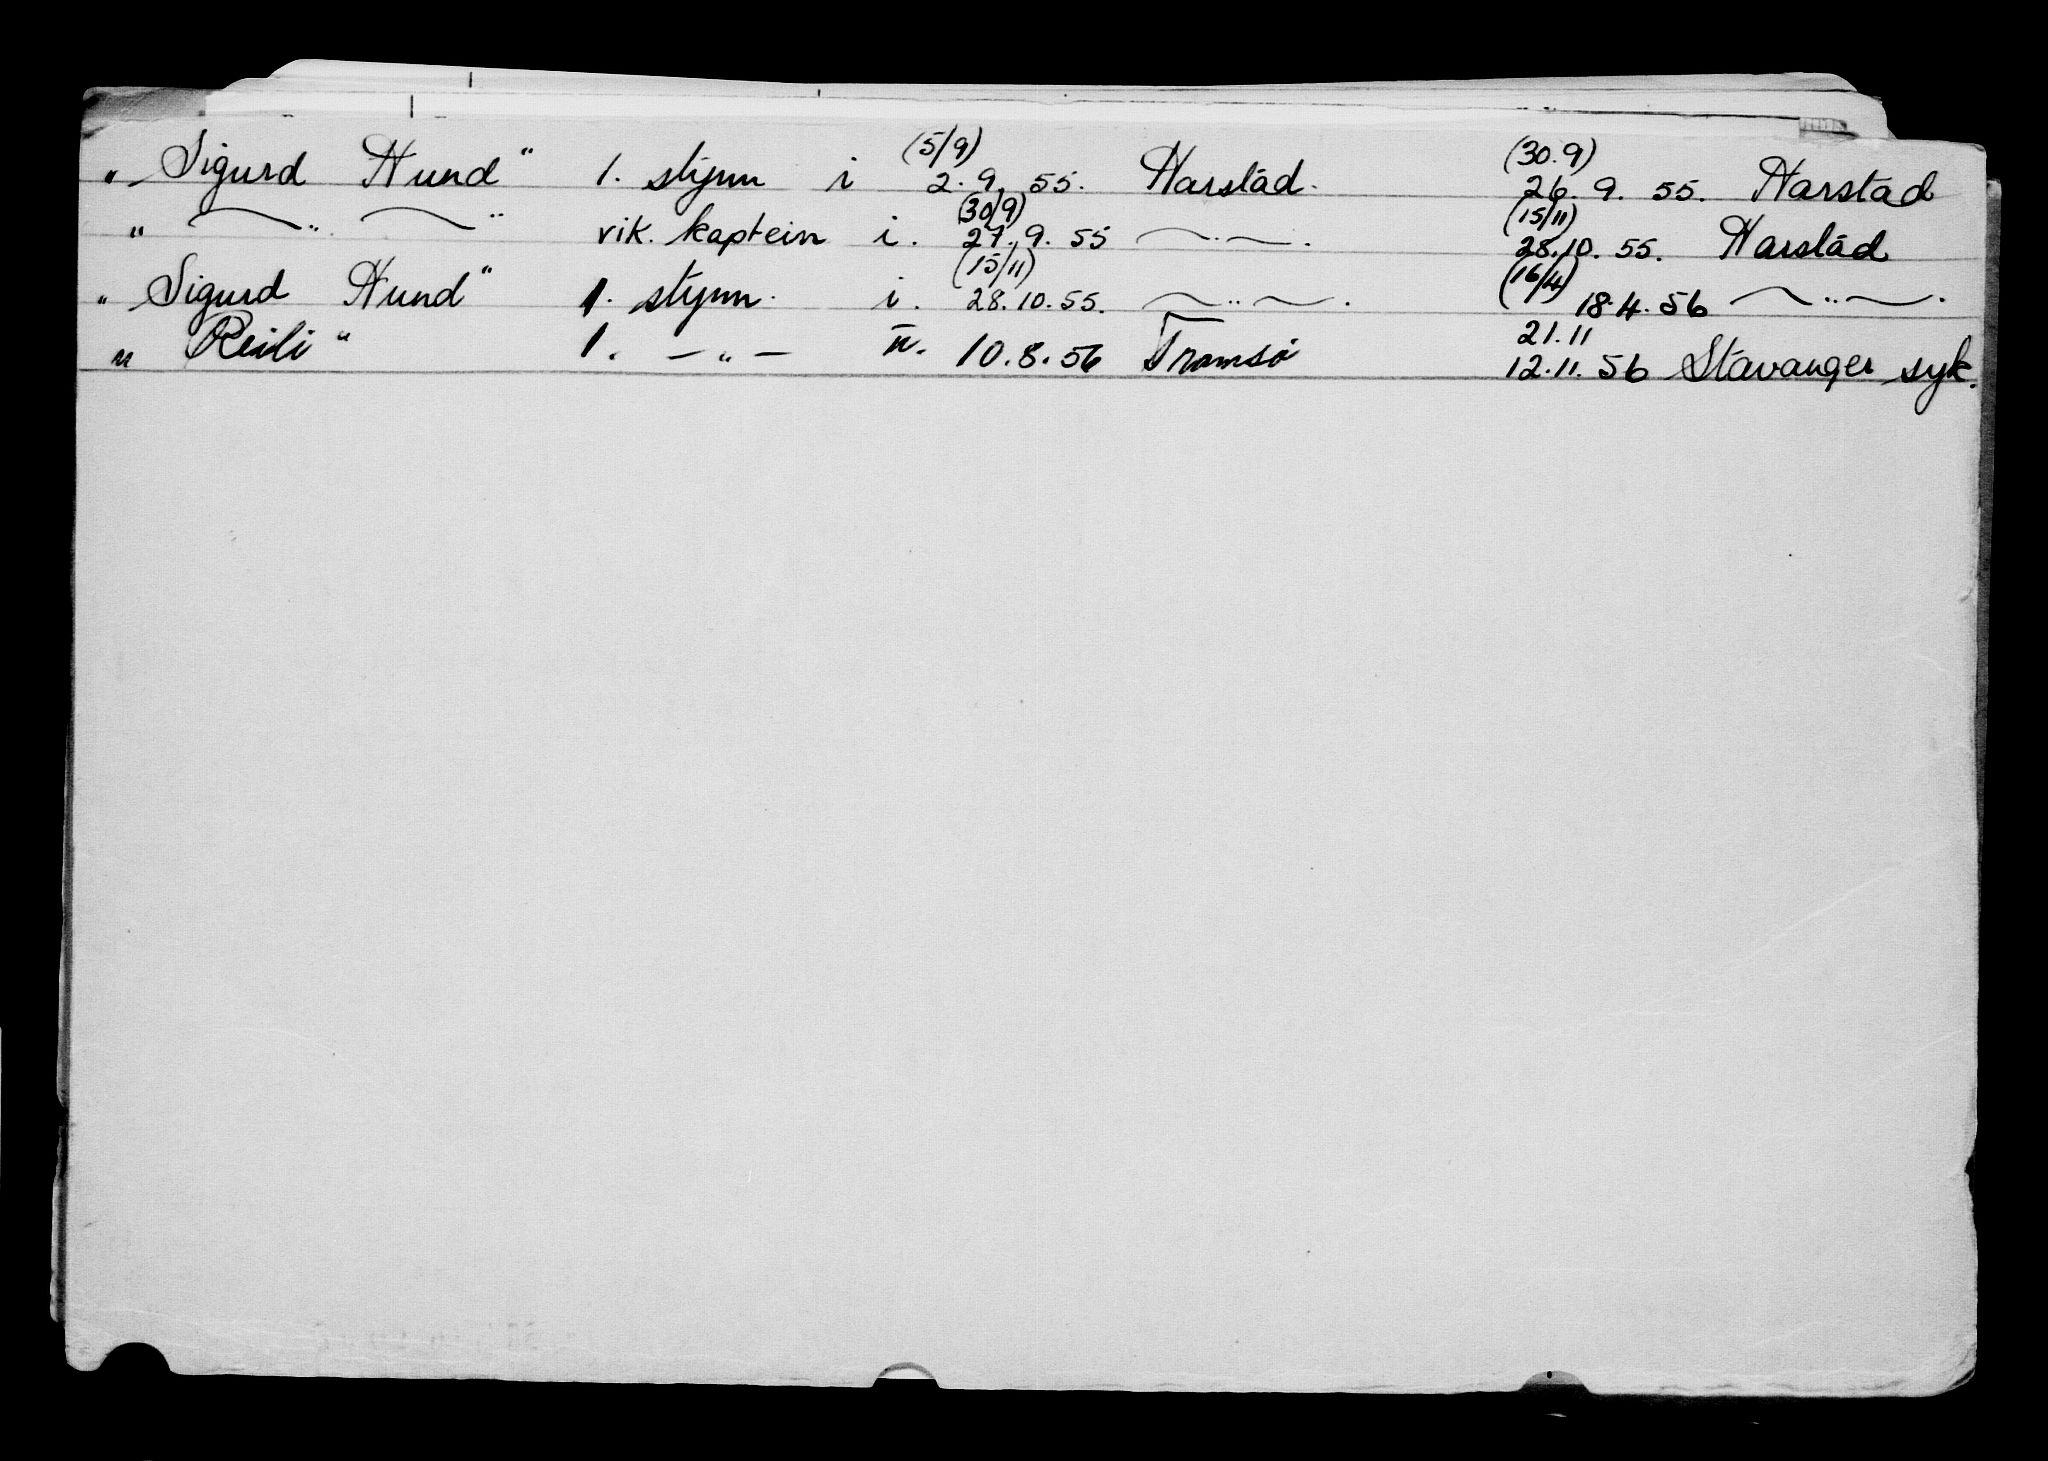 (5/9) (30.9)
„ Sigurd Hund" 1. styrm i 2.9.55. Harstad. 26.9.55. Harstad
(30/9) (15/11)
„ —„— " vik. kaptein i. 27.9.55 —„—. 28.10.55. Harstad
(15/11) (16/4)
„ Sigurd Hund" 1. styrm. i. 28.10.55. —„—. 18.4.56 —„—.
21.11
„ Reili" 1. —„— u. 10.8.56 Tromsø 12.11.56 Stavanger syk.